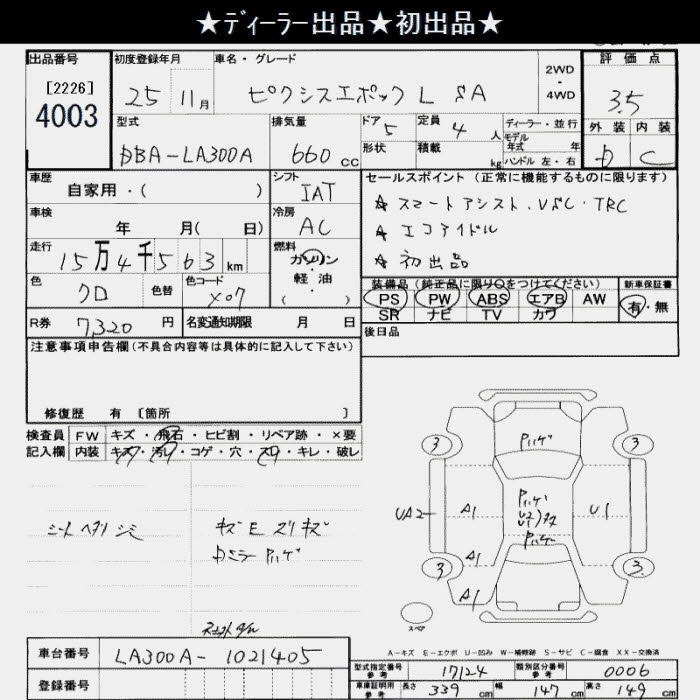 ★ディーラー出品★初出品★
出品番号 初度登録年月 車名・グレード 2WD・4WD 評価点
[2226] 4003 25 11月 ピクシスエポック L SA 3.5
型式 排気量 ドア 5 定員 4 人 ディーラー・並行 外装 内装
モデル年式 年
DBA-LA300A 660 cc 形状 積載 kg ハンドル 左・右 D C
車歴 シフト セールスポイント(正常に機能するものに限ります)
自家用・( ) IAT ★スマートアシスト.VSC・TRC
車検 冷房 ★エコアイドル
年 月( 日) AC ★初出品
走行 燃料
15万4千563km ガソリン・軽油( )
装備品(純正品に限り○をつけてください) 新車保証書
色 色替 色コード PS PW ABS エアB AW 有・無
クロ X07 SR ナビ TV カワ
R券 7,320 円 名変通知期限 月 日 後日品
注意事項申告欄(不具合内容等は具体的に記入して下さい)
修復歴 有 [箇所 ]
検査員 FW キズ・飛石・ヒビ割・リペア跡・×要
記入欄 内装 キズ・汚レ・コゲ・穴・スレ・キレ・破レ
Pハゲ
3 3
シート ヘタリ シミ キズE スリキズ
Pハゲ
UA2 A1 U2 U1 U1
A1
3 3
A1
スペア
A-キズ E-エクボ U-凹み W-補修跡 S-サビ C-腐食 XX-交換済
車台番号 LA300A-1021405
型式指定番号 参考 17124 類別区分番号 参考 0006
登録番号
車庫証明用 参考 長さ 339 cm 幅 147 cm 高さ 149 cm